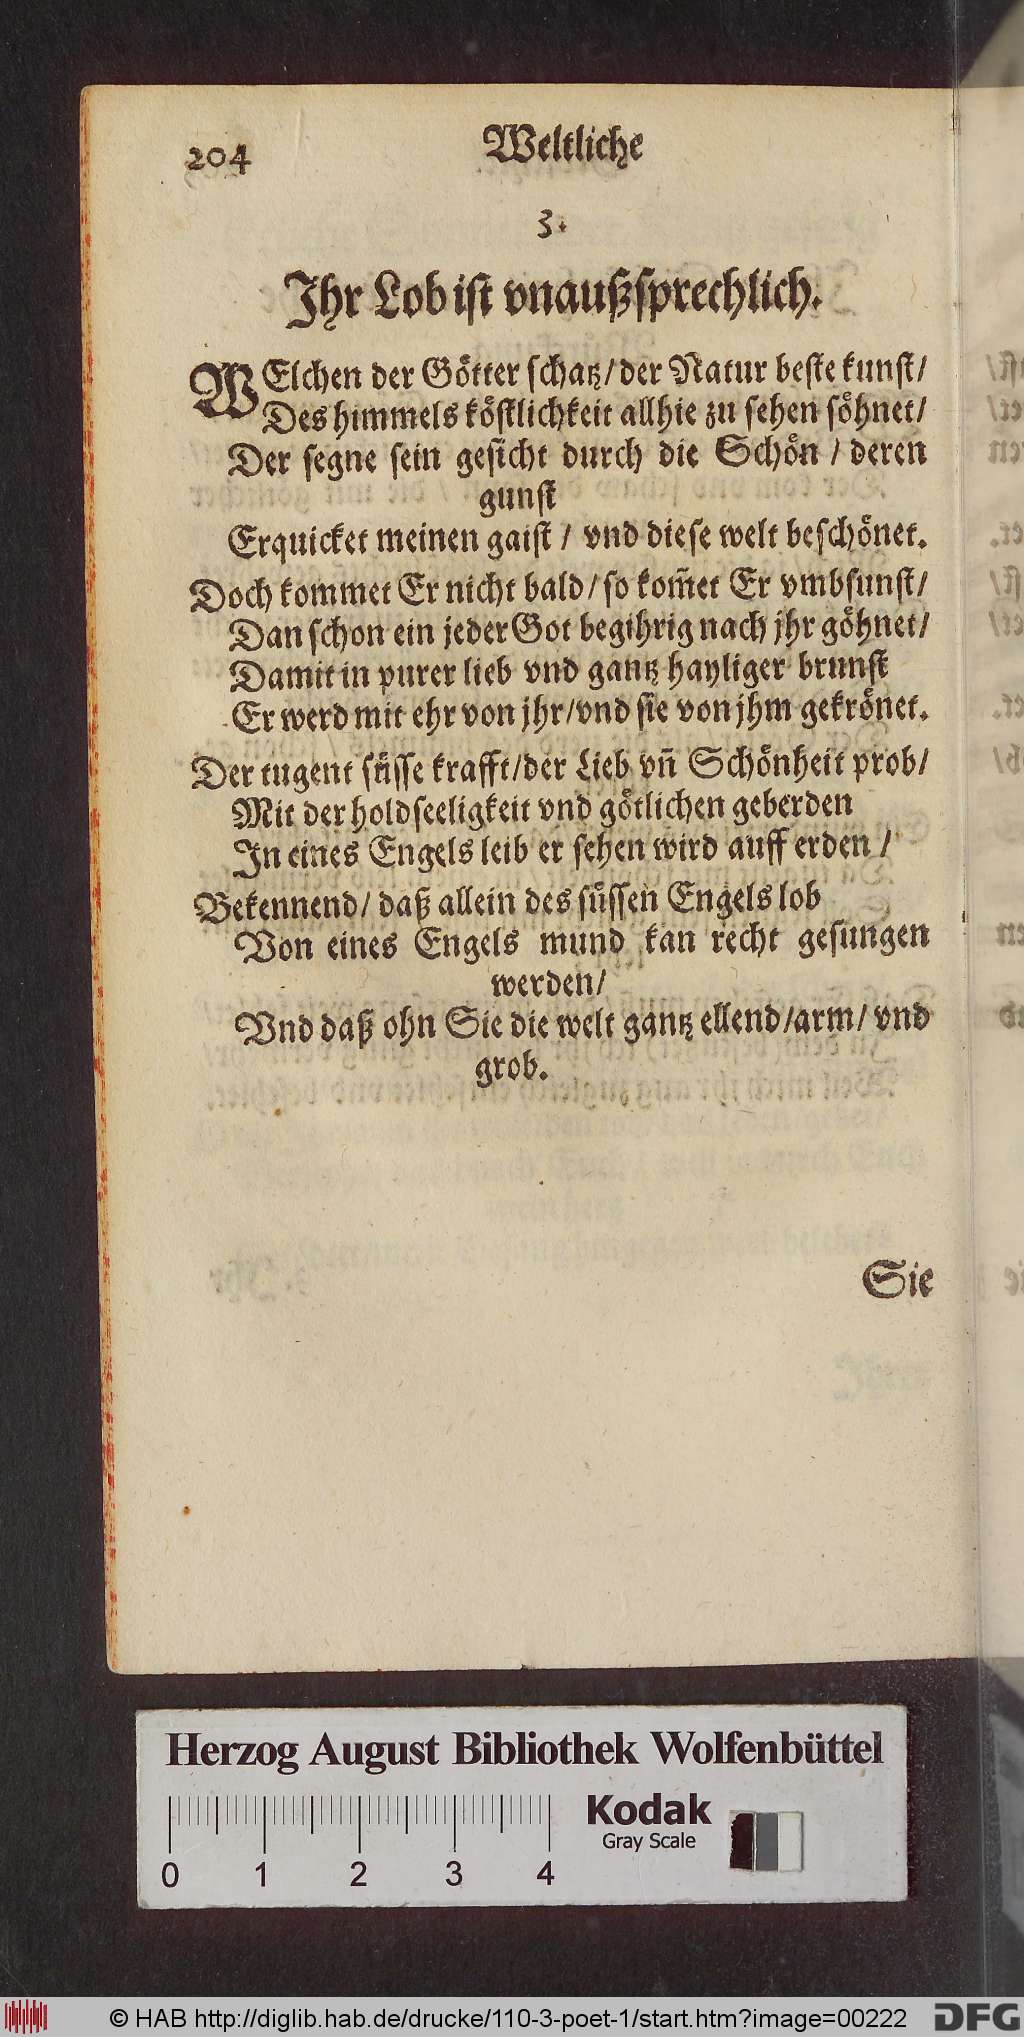 204 Weltliche
3.
Ihr Lob ist vnaußsprechlich.
WElchen der Götter schatz/der Natur beste kunst/
Des himmels köstlichkeit allhie zu sehen söhnet/
Der segne sein gesicht durch die Schön / deren
gunst
Erquicket meinen gaist / vnd diese welt beschönet.
Doch kommet Er nicht bald/ so kom̃et Er vmbsunst/
Dan schon ein jeder Got begihrig nach jhr göhnet/
Damit in purer lieb vnd gantz hayliger brunst
Er werd mit ehr von jhr/vnd sie von jhm gekrönet.
Der tugent süsse krafft/der Lieb vñ Schönheit prob/
Mit der holdseeligkeit vnd götlichen geberden
In eines Engels leib er sehen wird auff erden /
Bekennend/ daß allein des süssen Engels lob
Von eines Engels mund kan recht gesungen
werden/
Vnd daß ohn Sie die welt gantz ellend/arm/ vnd
grob.
Sie
Herzog August Bibliothek Wolfenbüttel
Kodak
Gray Scale
0 1 2 3 4
© HAB http://diglib.hab.de/drucke/110-3-poet-1/start.htm?image=00222 DFG